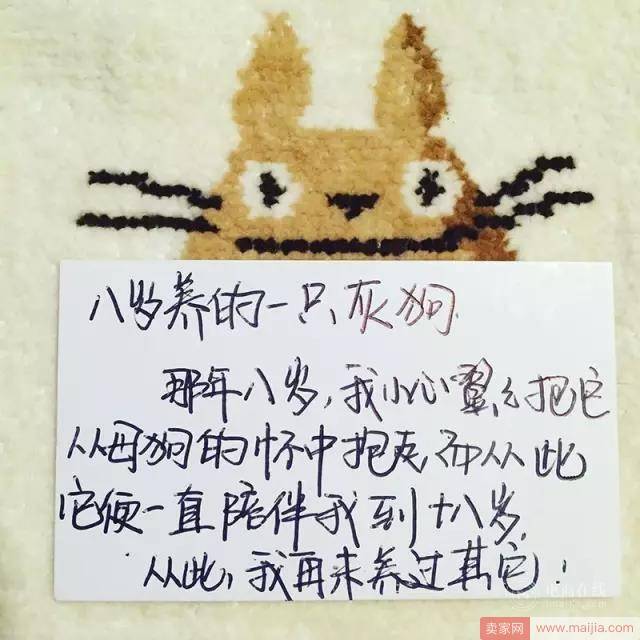 八岁养的一只灰狗
那年八岁,我小心翼么把它
从母狗的怀中抱走,而从此
它便一直陪伴我到十八岁
从此,我再未养过其它!
卖家网 www.maijia.com